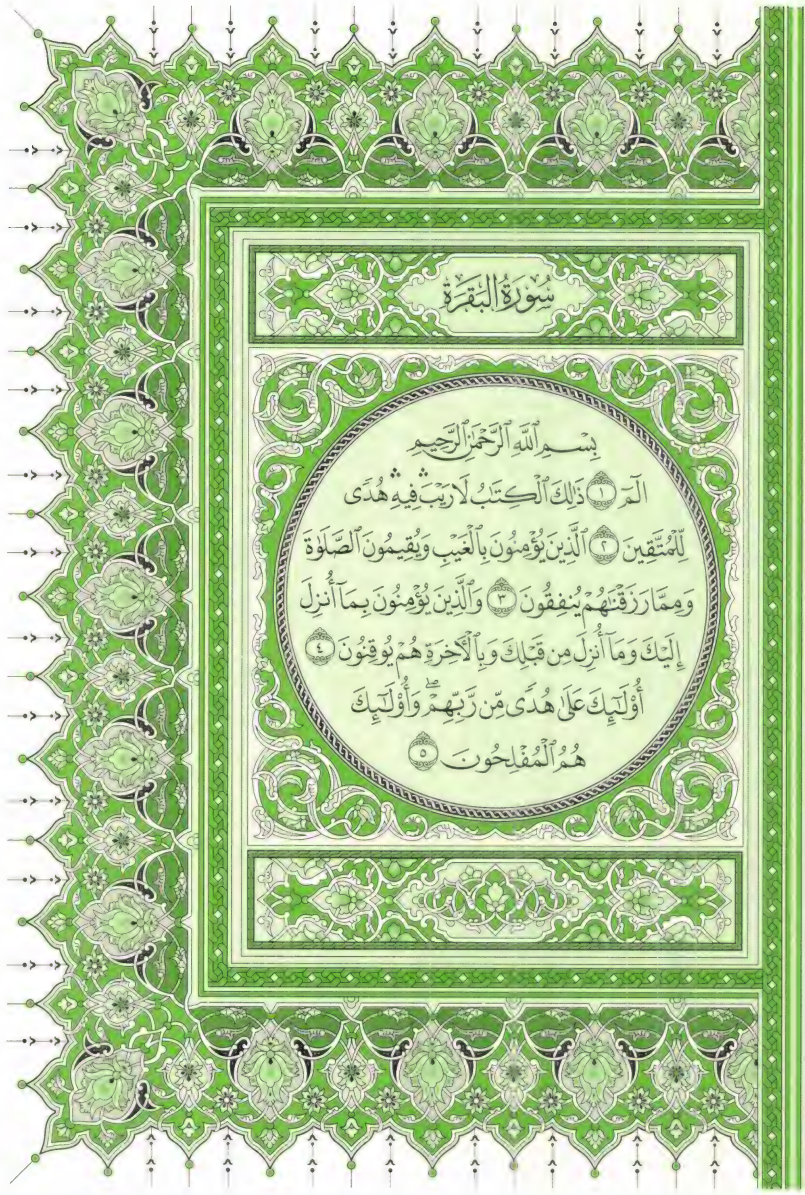 سُورَةُ البَقَرَةِ
بِسْمِ ٱللَّهِ ٱلرَّحْمَٰنِ ٱلرَّحِيمِ
الٓمٓ ۝١ ذَٰلِكَ ٱلْكِتَٰبُ لَا رَيْبَ ۛ فِيهِ ۛ هُدًى
لِّلْمُتَّقِينَ ۝٢ ٱلَّذِينَ يُؤْمِنُونَ بِٱلْغَيْبِ وَيُقِيمُونَ ٱلصَّلَوٰةَ
وَمِمَّا رَزَقْنَٰهُمْ يُنفِقُونَ ۝٣ وَٱلَّذِينَ يُؤْمِنُونَ بِمَآ أُنزِلَ
إِلَيْكَ وَمَآ أُنزِلَ مِن قَبْلِكَ وَبِٱلْأَخِرَةِ هُمْ يُوقِنُونَ ۝٤
أُو۟لَٰٓئِكَ عَلَىٰ هُدًى مِّن رَّبِّهِمْ ۖ وَأُو۟لَٰٓئِكَ
هُمُ ٱلْمُفْلِحُونَ ۝٥